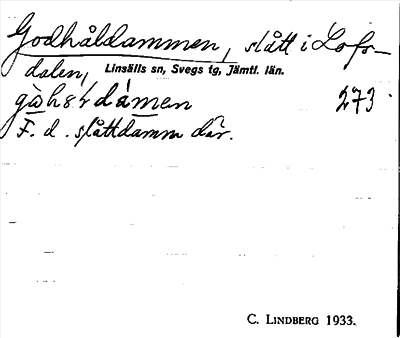 Godhåldammen, slått i Lofs-
dalen, Linsälls sn, Svegs tg, Jämtl. län.
273
F. d. slåttdamm där.
C. LINDBERG 1933.